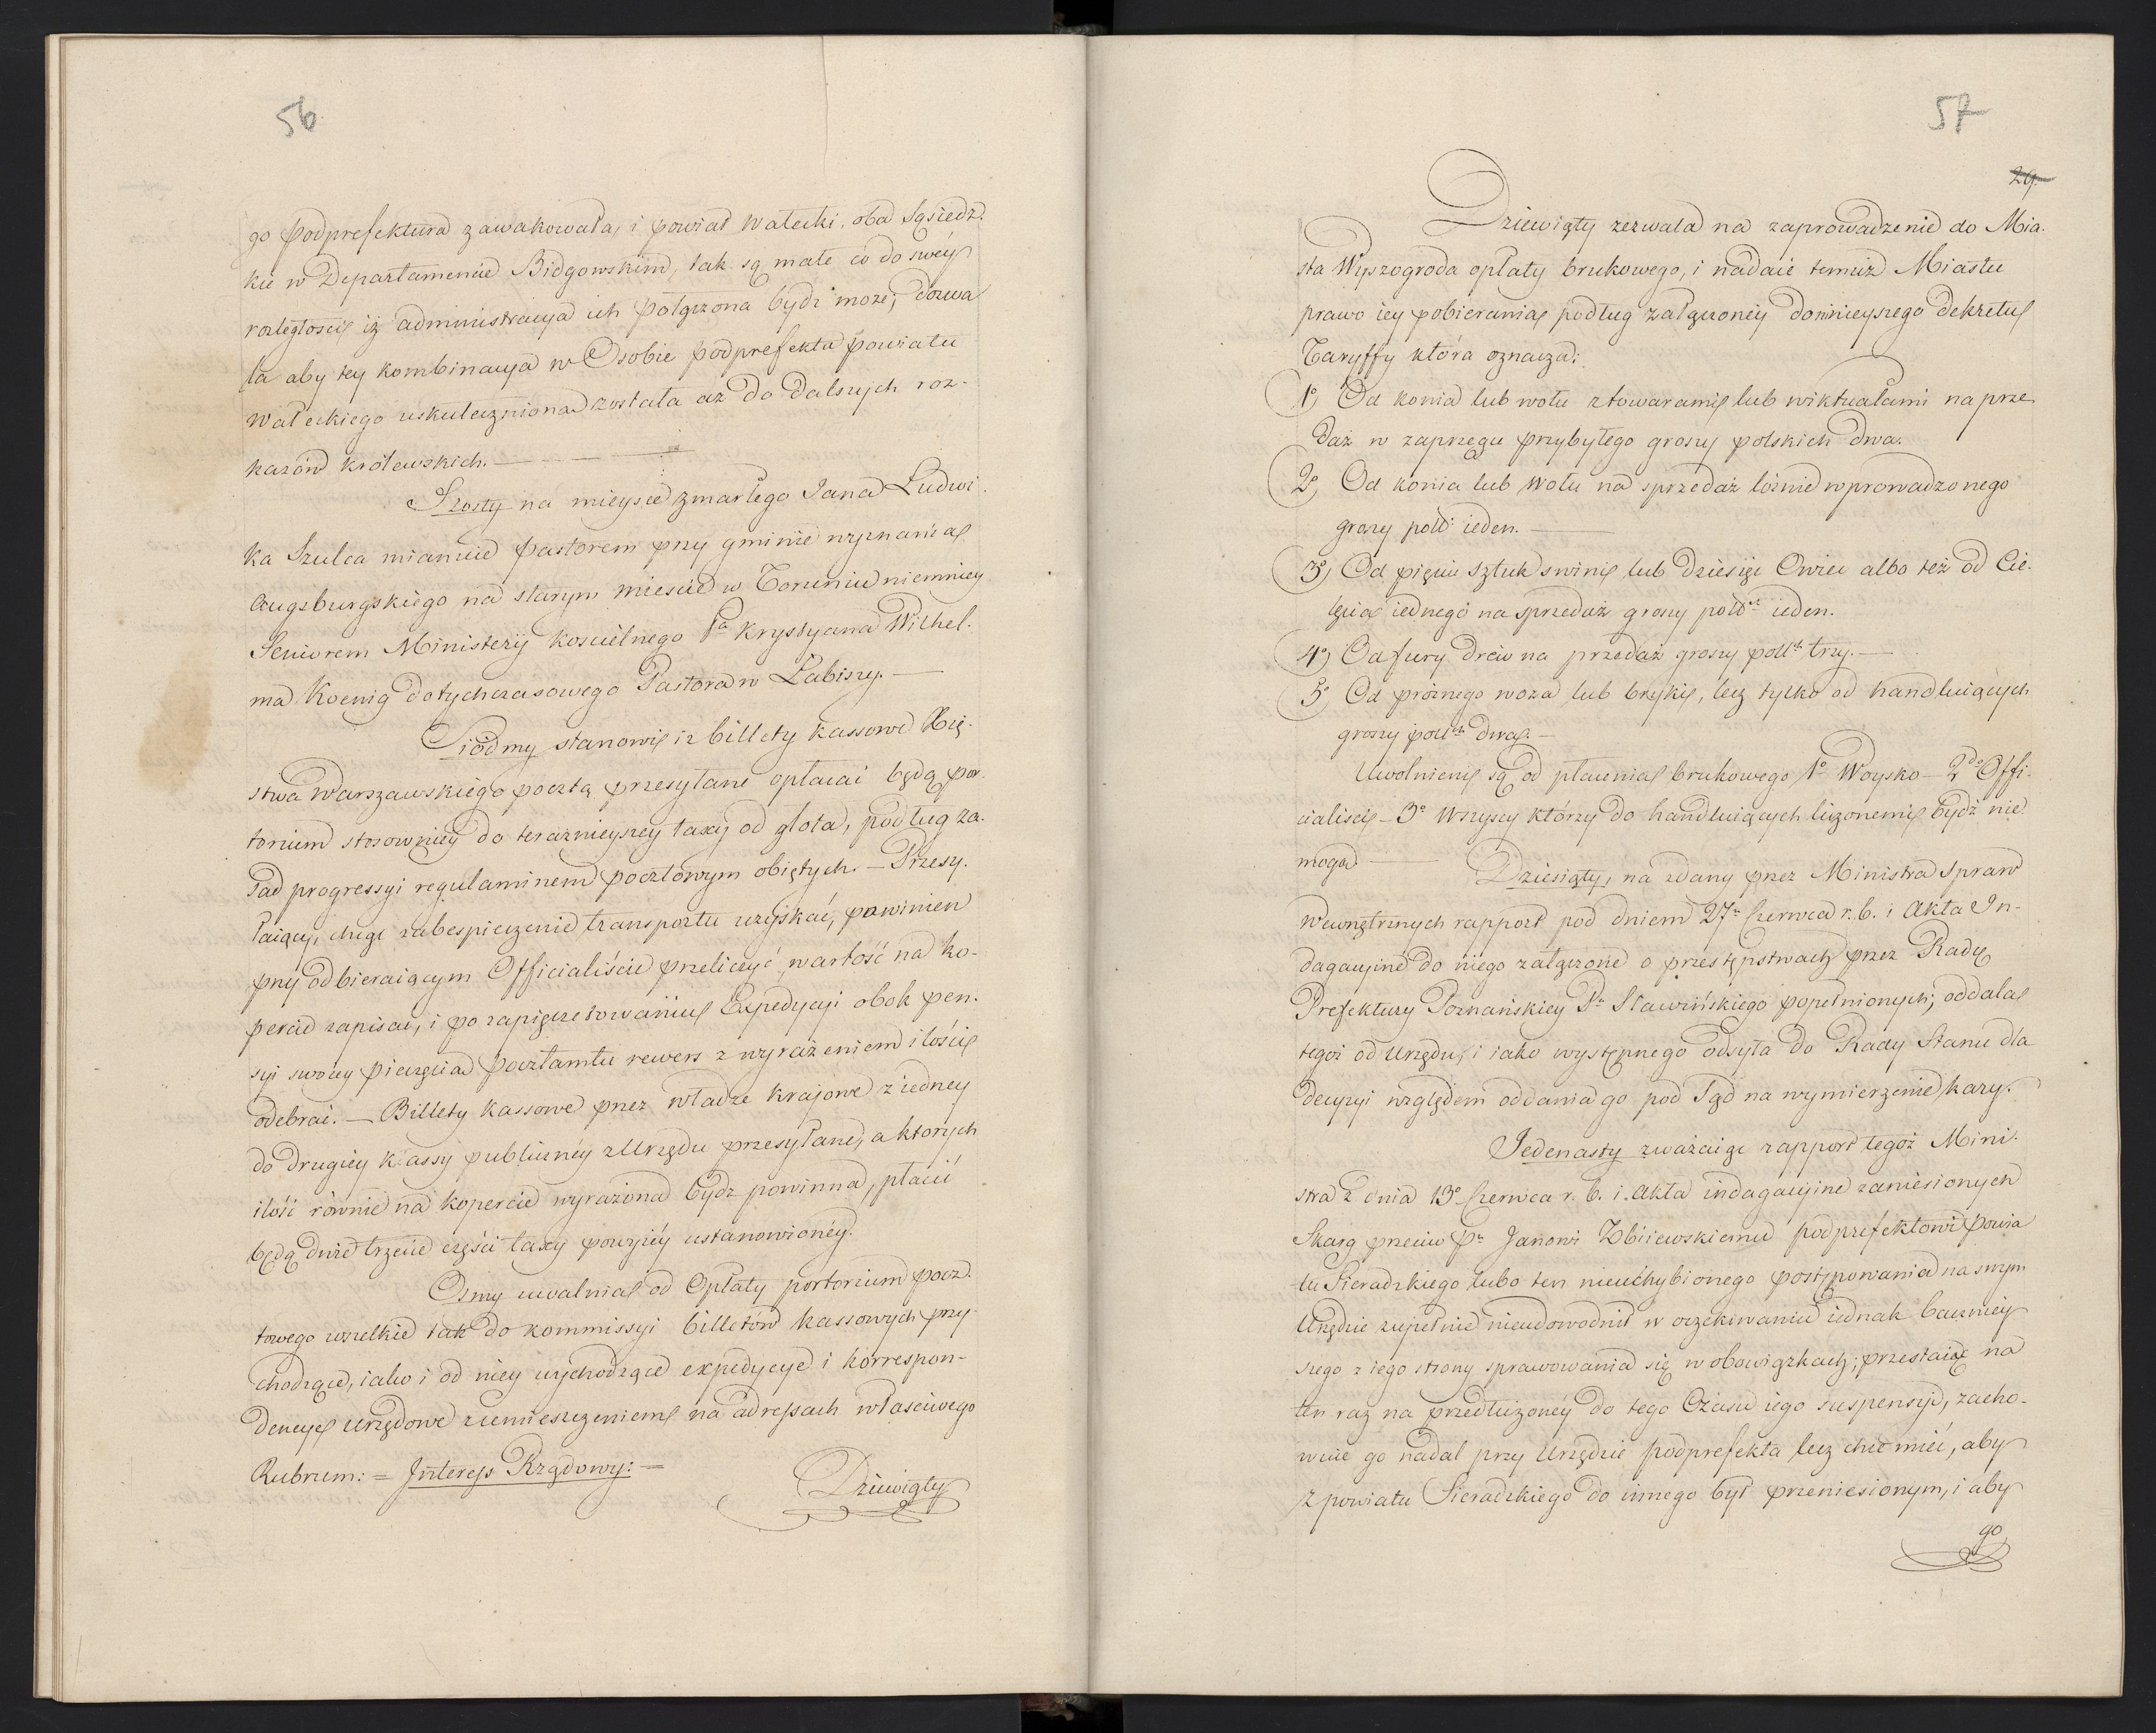 56
go podprefektura zawakowała, i powiat Wałecki, oba sąsiedz-
kie w Departamencie Bidgowskim, tak są małe co do swéy
rozległości iż administracya ich połączona bydź może, dozwa
la aby tey kombinacya w Osobie podprefekta powiatu
Wałeckiego uskuteczniona została aż do dalszych roz-
kazów królewskich. —
Szosty na mieysce zmarłego Jana Ludwi
ka Szulca mianuie pastorem przy gminie wyznania
Augsburgskiego na starym mieście w Toruniu niemniey
Seniorem Ministerij kościelnego Pa Krystyana Wilhel-
ma Koenig dotychczasowego Pastora w Łabiszy. —
Siódmy stanowi iż billety kassowe Xię-
stwa Warszawskiego pocztą przesyłane opłacać będą por-
torium stosowniey do teraznieyszey taxy od złota, podług za-
sad progressyi regulaminem pocztowym obiętych. — Przesy-
łaiący, chcąc zabespieczenie transportu uzyskać, powinien
przy odbieraiącym Officialiście przeliczyć, wartość na ko-
percie zapisać, i po zapieczętowaniu Expedycyi obok pen-
syi swoiey pieczęcią pocztamtu rewers z wyrażeniem ilości
odebrać. — Billety kassowe przez władze krajowe z iedney
do drugiey kassy publiczney z Urzędu przesyłane, a ktorych
ilość równie na kopercie wyrażona bydz powinna, płacić
będą dwie trzecie części taxy powyżéy ustanowionéy.
Osmy uwalnia od Opłaty portorium pocz-
towego wszelkie tak do kommissyi billetów kassowych przy-
chodzące, iako i od niey wychodzące expedycye i korrespon-
dencye urzędowe z umieszczeniem na adressach właściwego
Rubrum: = Interess Rządowy: =
Dziewiąty
57
29.
Dziewiąty zezwala na zaprowadzenie do Mia-
sta Wyszogroda opłaty brukowego, i nadaie temuż Miastu
prawo iey pobierania podług załączoney do ninieyszego dekretu
Taryffy która oznacza:
1o Od konia lub wołu z towarami lub wiktuałami na prze
daż w zaprzęgu przybyłego groszy polskich dwa.
2o Od konia lub wołu na sprzedaż lóźnie wprowadzonego
groszy pols: ieden. —
3o Od pięciu sztuk swini lub dziesięć Owiec albo też od Cie-
lęcia iednego na sprzedaż groszy polsch ieden.
4o Od fury drew na przedaż groszy polsch trzy. —
5o Od próżnego woza lub bryki, lecz tylko od handluiących
groszy polsch dwa. —
Uwolnieni są od płacenia brukowego 1o Woysko — 2do Offi-
cialiści — 3o Wszyscy którzy do handluiących liczonemi bydź nie
mogą —
Dziesiąty, na zdany przez Ministra Spraw
Wewnętrznych rapport pod dniem 27o Czerwca r. b. i Akta In-
dagacyine do niego załączone o przestępstwach przez Radcę
Prefektury Poznańskiey Pa Sławińskiego popełnionych; oddala
tegoż od Urzędu, i iako występnego odsyła do Rady Stanu dla
decyzyi względem oddania go pod Sąd na wymierzenie kary.
Jedenasty zważaiąc rapport tegoż Mini-
stra z dnia 13o Czerwca r. b. i Akta indagacyine zaniesionych
Skarg przeciw Pu Janowi Zbiiewskiemu podprefektowi powia
tu Sieradzkiego lubo ten nieuchybionego postępowania na swym
Urzędzie zupełnie nieudowodnił w oczekiwaniu iednak baczniey
szego z iego strony sprawowania się w obowiązkach; przestaiąc na
ten raz na przedłużonéy do tego Czasu iego suspensyi, zacho-
wuie go nadal przy Urzędzie podprefekta lecz chce mieć, aby
z powiatu Sieradzkiego do innego był przeniesionym, i aby
go